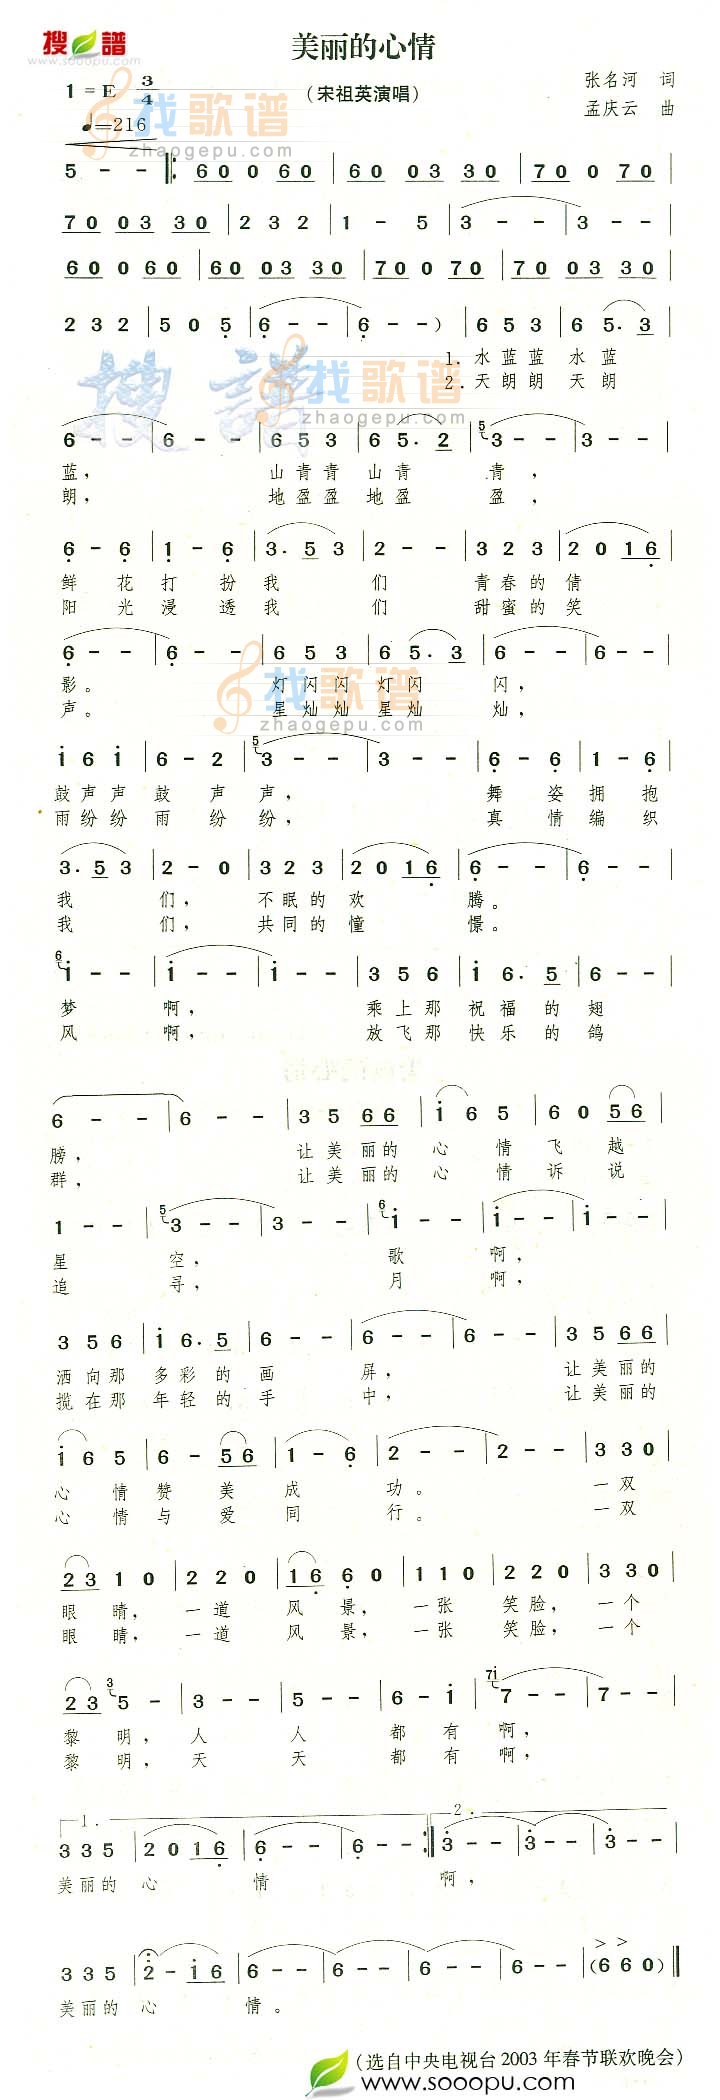 搜谱
www.sooopu.com
美丽的心情
1 = E 3/4
(宋祖英演唱)
张名河 词
孟庆云 曲
♩=216
找歌谱
zhaogepu.com
5 - - |: 60 0 60 | 60 03 30 | 70 0 70 |
70 03 30 | 2 3 2 | 1 - 5 | 3 - - | 3 - - |
60 0 60 | 60 03 30 | 70 0 70 | 70 03 30 |
2 3 2 | 5 0 5 | 6 - - | 6 - - ) | 6 5 3 | 6 5. 3 |
1. 水 蓝 蓝 水 蓝
2. 天 朗 朗 天 朗
搜谱
找歌谱
zhaogepu.com
6 - - | 6 - - | 6 5 3 | 6 5. 2 | 5 3 - - | 3 - - |
蓝, 山 青 青 山 青 青,
朗, 地 盈 盈 地 盈 盈,
6 - 6 | 1 - 6 | 3. 5 3 | 2 - - | 3 2 3 | 2 0 1 6 |
鲜 花 打 扮 我 们 青 春 的 倩
阳 光 浸 透 我 们 甜 蜜 的 笑
6 - - | 6 - - | 6 5 3 | 6 5. 3 | 6 - - | 6 - - |
影。 灯 闪 闪 灯 闪 闪,
声。 星 灿 灿 星 灿 灿,
找歌谱
zhaogepu.com
i 6 i | 6 - 2 | 5 3 - - | 3 - - | 6 - 6 | 1 - 6 |
鼓 声 声 鼓 声 声, 舞 姿 拥 抱
雨 纷 纷 雨 纷 纷, 真 情 编 织
3. 5 3 | 2 - 0 | 3 2 3 | 2 0 1 6 | 6 - - | 6 - - |
我 们, 不 眠 的 欢 腾。
我 们, 共 同 的 憧 憬。
6 i - - | i - - | i - - | 3 5 6 | i 6. 5 | 6 - - |
梦 啊, 乘 上 那 祝 福 的 翅
风 啊, 放 飞 那 快 乐 的 鸽
6 - - | 6 - - | 3 5 6 6 | i 6 5 | 6 0 5 6 |
膀, 让 美 丽 的 心 情 飞 越
群, 让 美 丽 的 心 情 诉 说
1 - - | 5 3 - - | 3 - - | 6 i - - | i - - | i - - |
星 空, 歌 啊,
追 寻, 月 啊,
3 5 6 | i 6. 5 | 6 - - | 6 - - | 6 - - | 3 5 6 6 |
洒 向 那 多 彩 的 画 屏, 让 美 丽 的
揽 在 那 年 轻 的 手 中, 让 美 丽 的
i 6 5 | 6 - 5 6 | 1 - 6 | 2 - - | 2 - - | 3 3 0 |
心 情 赞 美 成 功。 一 双
心 情 与 爱 同 行。 一 双
2 3 1 0 | 2 2 0 | 1 6 6 0 | 1 1 0 | 2 2 0 | 3 3 0 |
眼 睛, 一 道 风 景, 一 张 笑 脸, 一 个
眼 睛, 一 道 风 景, 一 张 笑 脸, 一 个
2 3 3 5 - | 3 - - | 5 - - | 6 - i | 7i 7 - - | 7 - - |
黎 明, 人 人 都 有 啊,
黎 明, 天 天 都 有 啊,
1. 2.
3 3 5 | 2 0 1 6 | 6 - - | 6 - - :| 3 - - | 3 - - | 3 - - |
美 丽 的 心 情 啊,
3 3 5 | 2 - 1 6 | 6 - - | 6 - - | 6 - - | 6 - - | (6 6 0) |
美 丽 的 心 情。
(选自中央电视台 2003 年春节联欢晚会)
www.sooopu.com